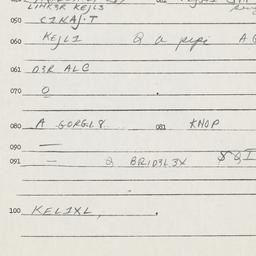 LIHK3R KEJL3
050 CIKAJ.T
060 KEJLI Q a pipe A
061 D3R ALG
070 0
080 A GORGL8 081 KNOP
090 —
091 — Q BRID3L3X
100 KEL1XL,